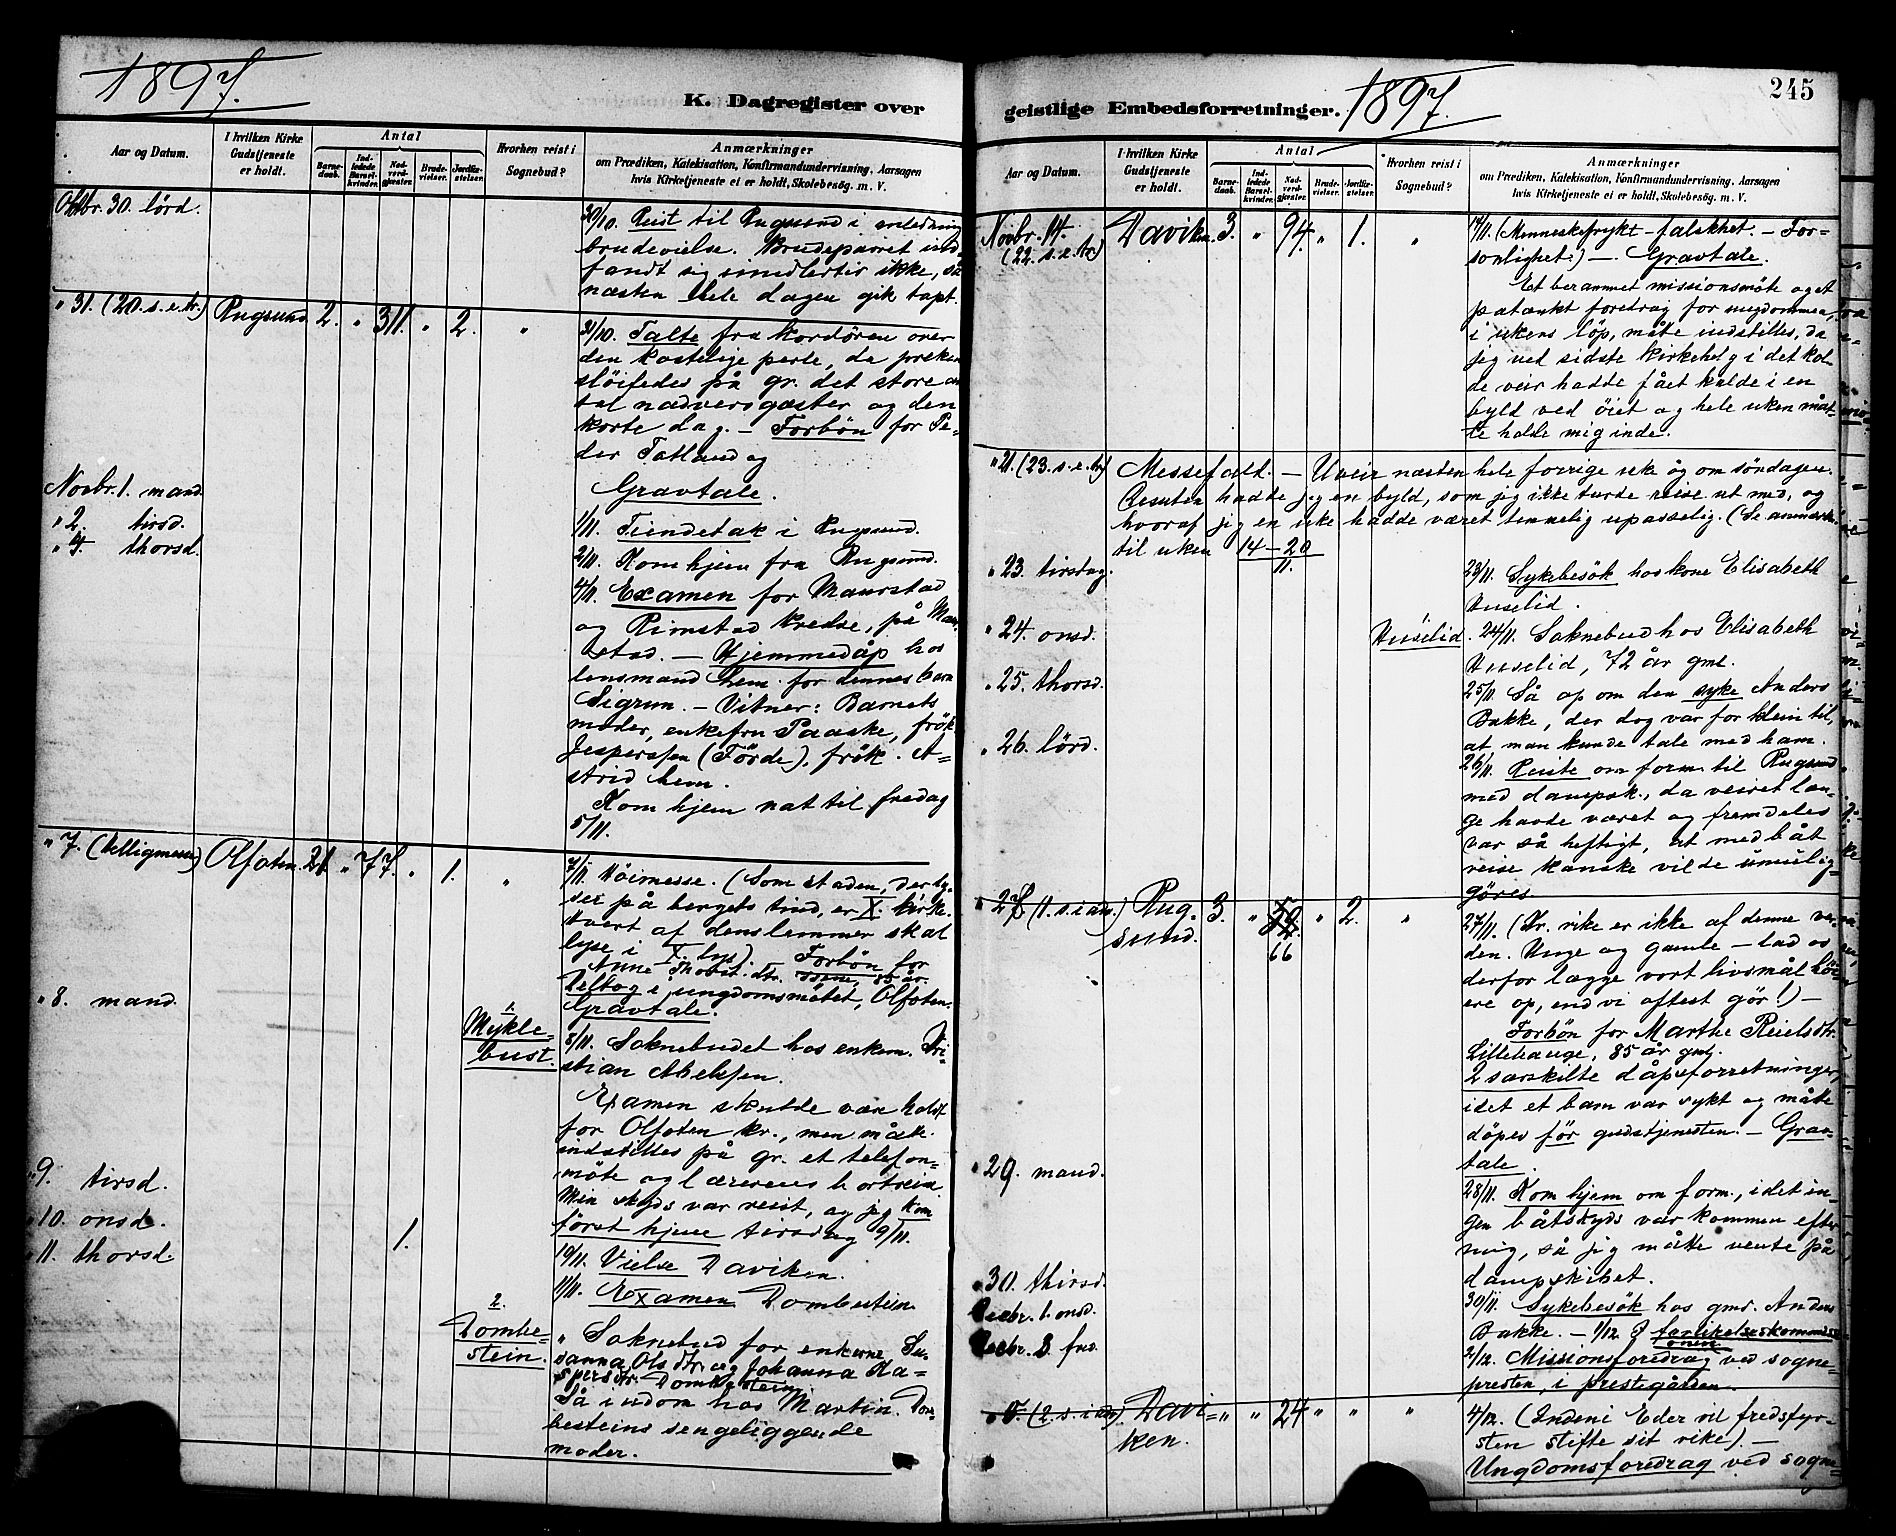 1897.
K. Dagregister over
Aar og Datum.
I hvilken Kirke Gudstjeneste er holdt.
Antal
Barnedaab.
Indledede Barselkvinder.
Nadverdgjester.
Brudevielser.
Jordfæstelser.
Hvorhen reist i Sognebud?
Anmærkninger
om Prædiken, Katekisation, Konfirmandundervisning, Aarsagen
hvis Kirketjeneste ei er holdt, Skolebesøg. m. V.
Oktbr. 30. lörd.
30/10. Reist til Rugsund i anledning
brudevielse. Brudeparret ind-
fandt sig imidlertid ikke, så
næsten hele dagen gik tapt.
" 31. (20. s. e. tr.) Rugsund 2. " 311. " 2. "
31/10. Talte fra kordören over
den kostelige perle, da preken
slöifedes på gr. det store an
tal nadversgæster og den
korte dag. – Forbön for Pe-
der Tatland og
Gravtale.
Novbr. 1. mand.
1/11. Tiendetak i Rugsund.
" 2. tirsd.
2/11. Kom hjem fra Rugsund.
" 4. thorsd.
4/11. Examen for Maurstad
og Rimstad kredse, på Maur-
stad. – Hjemmedåp hos
lensmand hem for dennes barn
Sigrun. – Vitner: Barnets
moder, enkefru Paaske, frök.
Jespersen (Förde), frök. A-
strid hem.
Kom hjem nat til fredag
5/11.
" 7. (helligmesse) Olfoten. 21 " 77. " 1. "
7/11. Höimesse. (Som staden, der ly-
ser på bergets tind, er X. kirke.
Hvert af dens lemmer skal
lyse i X. lys). Forbön for
Anne Thoris dtr. 85 år.
Deltog i ungdomsmötet, Olfoten.
Gravtale.
" 8. mand.
1.
Mykle-
bust.
8/11. Soknebudet hos enkem. Kri
stian Abelsen.
Examen skulde være holdt
for Olfoten kr., men måtte
indstilles på gr. et telefon-
möte og lærerens bortreise.
Min skyds var reist, og jeg kom
först hjem tirsdag 9/11.
" 9. tirsd.
" 10. onsd.
1.
10/11. Vielse Daviken.
" 11. thorsd.
11/11. Examen Dombestein
2.
Dombe-
stein.
" Soknebud for enkerne Su-
sanna Ols dtr. og Johanna Ka-
spersdtr. Dombestein
Så indom hos Martin Dom-
besteins sengeliggende
moder.
245
geistlige Embedsforretninger.
1897.
Aar og Datum.
I hvilken Kirke Gudstjeneste er holdt.
Antal
Barnedaab.
Indledede Barselkvinder.
Nadverdgjester.
Brudevielser.
Jordfæstelser.
Hvorhen reist i Sognebud?
Anmærkninger
om Prædiken, Katekisation, Konfirmandundervisning, Aarsagen
hvis Kirketjeneste ei er holdt, Skolebesøg. m. V.
Novbr. 14. (22. s. e. tr.) Daviken. 3. " 94. " 1. "
14/11. (Menneskefrykt – falskhet. – For-
sonlighet.) – Gravtale.
Et berammet missionsmöte og et
påtænkt foredrag for ungdommen,
i ukens löp, måtte indstilles, da
jeg ved sidste kirkehelg i det kol-
de veir hadde fået kulde i en
byld ved öiet og hele uken måt-
te holde mig inde.
" 21. (23. s. e. tr.) Messefald. – Uveir næsten hele forrige uke og om söndagen.
Desuten hadde jeg en byld, som jeg ikke turde reise ut med, og
hvoraf jeg en uke hadde været temmelig upasselig. (Se anmerkn.
til uken 14–20/11.
" 23. tirsdag.
23/11. Sykebesök hos kone Elisabeth
Huselid.
" 24. onsd.
Huselid.
24/11. Soknebud hos Elisabeth
Huselid, 72 år gml.
" 25. thorsd.
25/11. Så op om den syke Anders
Bakke, der dog var for klein til,
at man kunde tale med ham.
" 26. lörd.
26/11. Reiste om form. til Rugsund
med dampsk., da veiret læn-
ge havde været og fremdeles
var så heftigt, at med båt
reise kanske vilde umulig-
göres
" 28 (1. s. i adv.) Rug-
sund. 3. " 66 " 2. "
27/11. (Kr. rike er ikke af denne ver-
den. Unge og gamle – lad os
derfor lægge vort livsmål höi-
ere op, end vi oftest gör!) –
Forbön for Marthe Reielsdtr.
Lillehauge, 85 år gml.
2 særskilte dåpsforretninger,
idet et barn var sykt og måtte
döpes för gudstjenesten. – Grav-
tale.
" 29. mand.
28/11. Kom hjem om form., idet in-
gen båtskyds var kommen efter
mig, så jeg måtte vente på
dampskibet.
" 30. thirsd.
30/11. Sykebesök hos gmd. Anders
Decbr. 1. onsd.
Bakke. – 1/12 forlikelseskommissi-
onen.
Decbr. 3. fred.
2/12. Missionsforedrag ved sogne-
presten, i prestegården.
" 5. (2. s. i adv.) Davi-
ken. " " 24 " " "
4/12. (Indeni Eder vil fredsfyr-
sten stifte sit rike). –
Ungdomsforedrag ved sogne-